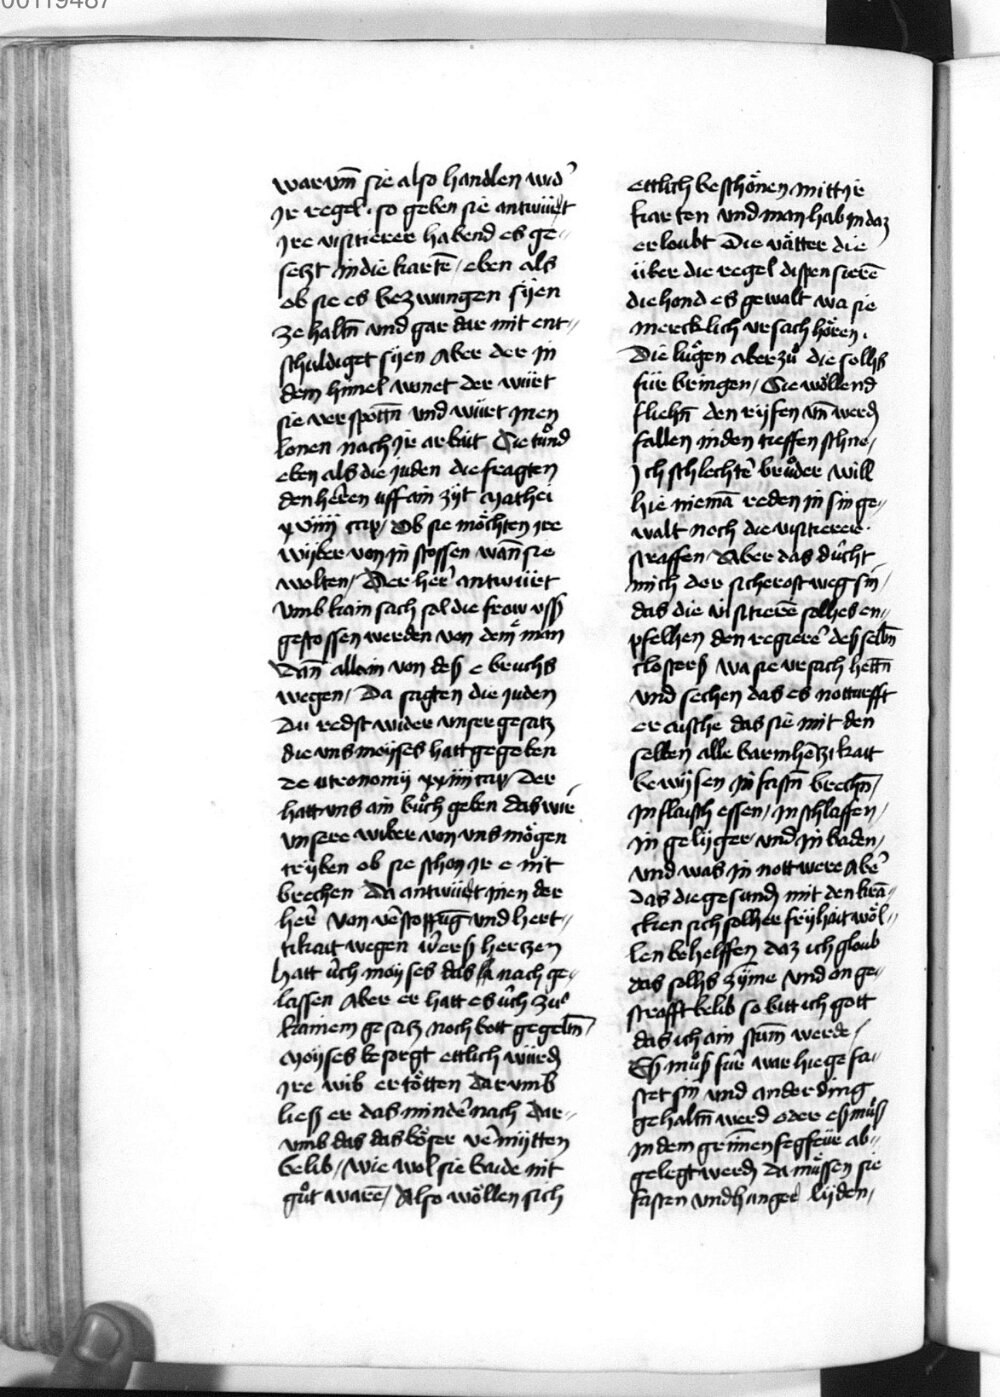 00119487
warum̄ sie also handlen wid'
Jr regel · so geben sie antwürt
Jre visitierer habend es ge-
setzt in die kartē / eben als
ob sie es bezwungen sÿen
ze haltn̄ vnd gar dar mit ent-
schuldiget sÿen Aber der in
dem himel wonet der würt
sie verspottn̄ vnd würt jnen
lonen nach jr arbait Sie tůnd
eben als die juden die fragten
den herren uff ain zÿt Mathei
xviiij cap / Ob sie möchten jre
wÿber von in stossen wan̄ sie
wolten / Der her' antwürt
vmb kain sach sol die frow vß
gestossen werden von dem man
Dan̄ allain von deß e bruchs
wegen / Da sagten die juden
Du redst wider vnser gesatz
die vns moÿses hatt gegeben
deutronomij xxiiij cap / Der
hatt vns ain bůch geben das wir
vnsere wiber von vns mögen
trÿben ob sie schon jr e nit
brechen Da antwürt jnen der
her' von v'stoppūg vnd hert-
tikait wegen üwerß hertzen
hatt üch moÿses das nach ge-
lassen Aber er hatt es üch zů
kainem gesatz noch bott gegebn̄ /
Moÿses besorgt ettlich würdn̄
jre wib ertötten Darumb
liess er das minder nach Dar-
vmb das das böser vermitten
belib / wie wol sie baide nit
gůt warē / Also wöllen sich
ettlich beschönen mitt jr
kartten vnd man hab in daz
erloubt Die vätter die
über die regel dispensierē
die hond es gewalt wa sie
mercklich vrsach hören ·
Die lůgen aber zů die sollß
für bringen / Sie wöllend
fliehn̄ den rÿfen vn̄ werdn̄
fallen in den tieffen schne /
Ich schlechter brůder will
hie niemā reden in sin ge-
walt noch die visitierer ·
straffen / Aber das dücht
mich der sicherost weg sin /
das die visitierer sollhes en-
pfelhen den regierer deß selbn̄
closterß wa sie vrsach hettn̄
vnd sechen das es notturfft
ercuische das sie mit den
selben alle barmhertzikait
bewÿsen jn fastn̄ brechn̄ /
jn flaisch essen / jn schlaffen /
jn geliger vnd jn baden /
vnd was jn nott were Aber
das die gesundn̄ mit den krā-
cken sich sollher frÿhait wöl-
len behelffen daz ich gloub
das sollhs zÿme vnd on ge-
strafft belib so bitt ich gott
das ich ain stum̄ werde /
Eß můß für war hie gefa-
stet sin vnd ander ding
gehaltn̄ werdn̄ oder eß můß
jn dem grimen fegfeür ab-
gelegt werdn̄ da můssen sie
fasten vnd hunger lÿden /